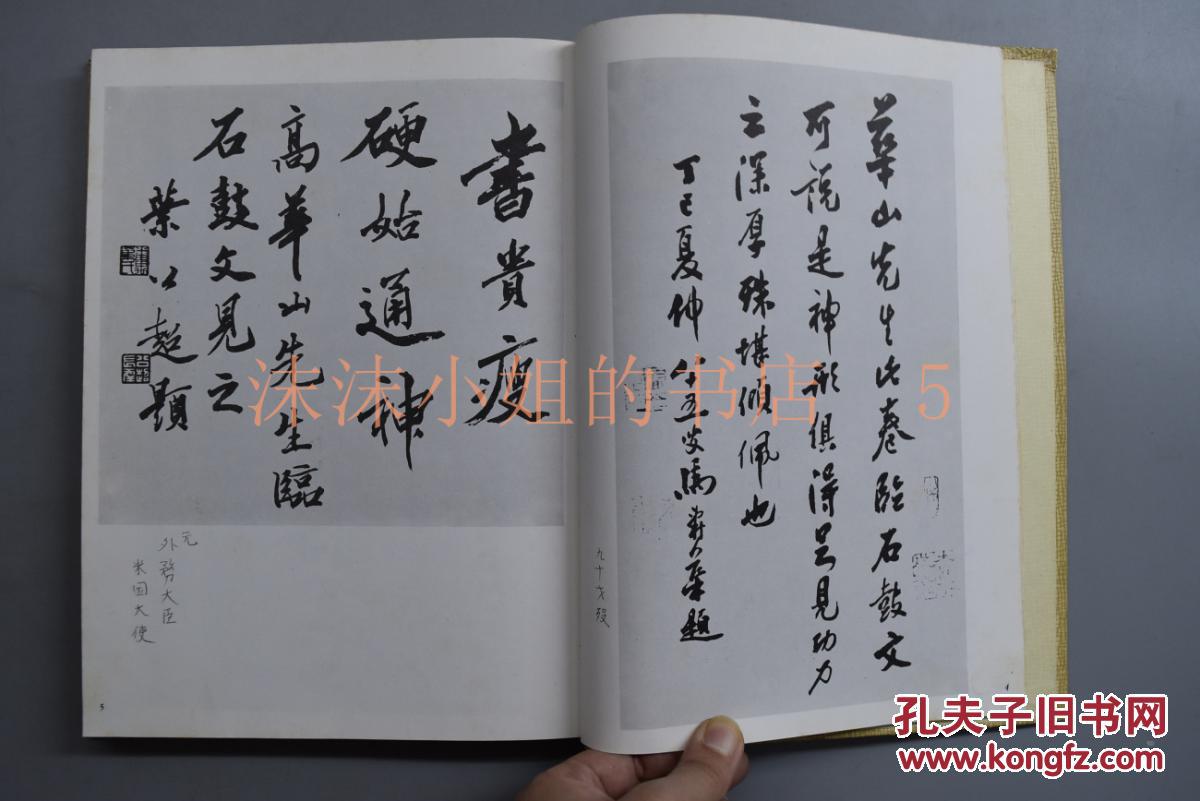 華山先生此卷臨石鼓文
可說是神形俱得足見功力
之深厚殊堪傾佩也
丁巳夏仲 馬壽華題
九十才歿
4
書貴瘦
硬始通神
高華山先生臨
石鼓文見之
葉公超題
元
外務大臣
米国大使
5
沫沫小姐的书店 5
孔夫子旧书网
www.kongfz.com